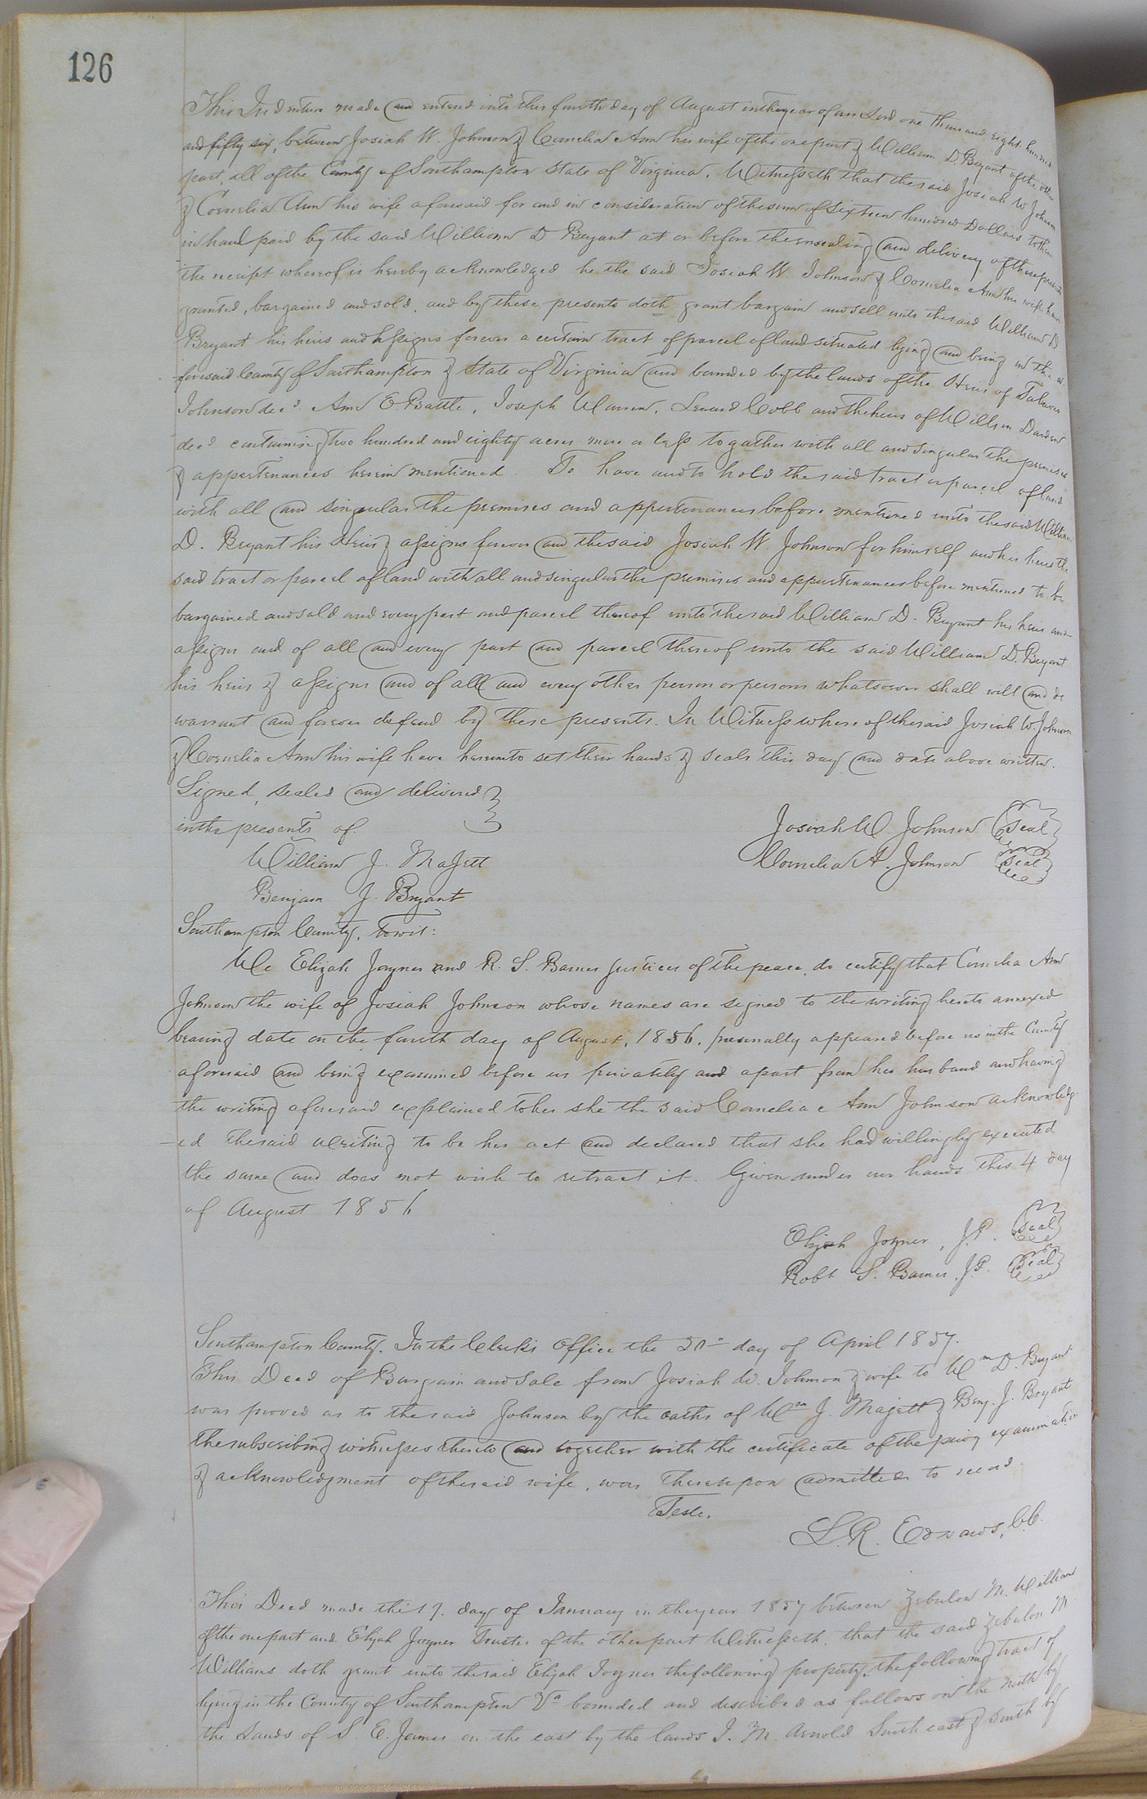 126
This Indenture made and entered into this fourth day of August in the year of our Lord one thousand eight hundred
and fifty six, between Josiah W. Johnson & Cornelia Ann his wife of the one part & William D Bryant of the other
part, all of the County of Southampton State of Virginia. Witnesseth that the said Josiah W Johnson
& Cornelia Ann his wife aforesaid for and in consideration of the sum of Sixteen hundred Dollars to them
in hand paid by the said William D Bryant at or before the ensealing and delivery of these presents
the receipt whereof is hereby acknowledged he the said Josiah W. Johnson & Cornelia Ann his wife have
granted, bargained and sold, and by these presents doth grant bargain and sell unto the said William D
Bryant his heirs and assigns forever a certain tract of parcel of land situated lying and being in the a
foresaid County of Southampton & State of Virginia and bounded by the lands of the Heirs of
Johnson decd. Ann E Battle, Joseph Warren, Cobb and the heirs of William Darden
decd containing two hundred and eighty acres more or less together with all and singular the premises
& appertenances herein mentioned To have and to hold the said tract or parcel of land
with all and singular the premises and appertenances before mentioned unto the said William
D. Bryant his Heirs & assigns forever and the said Josiah W Johnson for himself and his heirs the
said tract or parcel of land with all and singular the premises and appertenances before mentioned to be
bargained and sold and every part and parcel thereof unto the said William D. Bryant his heirs and
assigns and of all and every part and parcel thereof unto the said William D. Bryant
his heirs & assigns and of all and every other person or persons whatsoever shall will and do
warrant and forever defend by these presents. In Witness whereof the said Josiah W. Johnson
& Cornelia Ann his wife have hereunto set their hands & seals this day and date above written.
Signed, sealed and delivered
in the presents of
Josiah W. Johnson (Seal)
William J. Majett
Cornelia A. Johnson (Seal)
Benjam J. Bryant
Southampton County, Towit:
We Elijah Joyner and R. S. Barnes Justices of the peace, do certify that Cornelia Ann
Johnson the wife of Josiah Johnson whose names are signed to the writing hereto annexed
bearing date on the fourth day of August, 1856, personally appeared before us in the County
aforesaid and being examined before us privately and apart from her husband and having
the writing aforesaid explained to her she the said Cornelia Ann Johnson acknowledg
-ed the said writing to be her act and declared that she had willingly executed
the same and does not wish to retract it. Given under our hands this 4 day
of August 1856
Elijah Joyner, J.P. (Seal)
Robt S. Barnes J.P. (Seal)
Southampton County. In the Clerk's Office the day of April 1857.
This Deed of Bargain and Sale from Josiah W. Johnson & wife to Wm D. Bryant
was proved as to the said Johnson by the oaths of Wm J. Majett & Benj. J. Bryant
the subscribing witnesses thereto and together with the certificate of the privy examination
& acknowledgment of the said wife, was thereupon admitted to record
Teste.
L. R. Edwards, C.C.
This Deed made the 17. day of January in the year 1857 between Zebulon M. Williams
of the one part and Elijah Joyner Trustee of the other part Witnesseth, that the said Zebulon M
Williams doth grant unto the said Elijah Joyner the following property, the following tract of
lying in the County of Southampton Va bounded and described as follows on the north by
the Lands of S. E. James on the east by the lands J. M. Arnold South east & South by